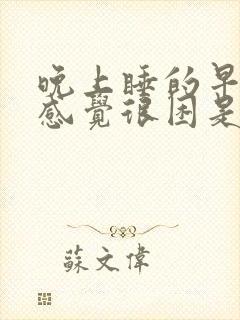 晚上睡的早
感覺很困是
蘇文偉